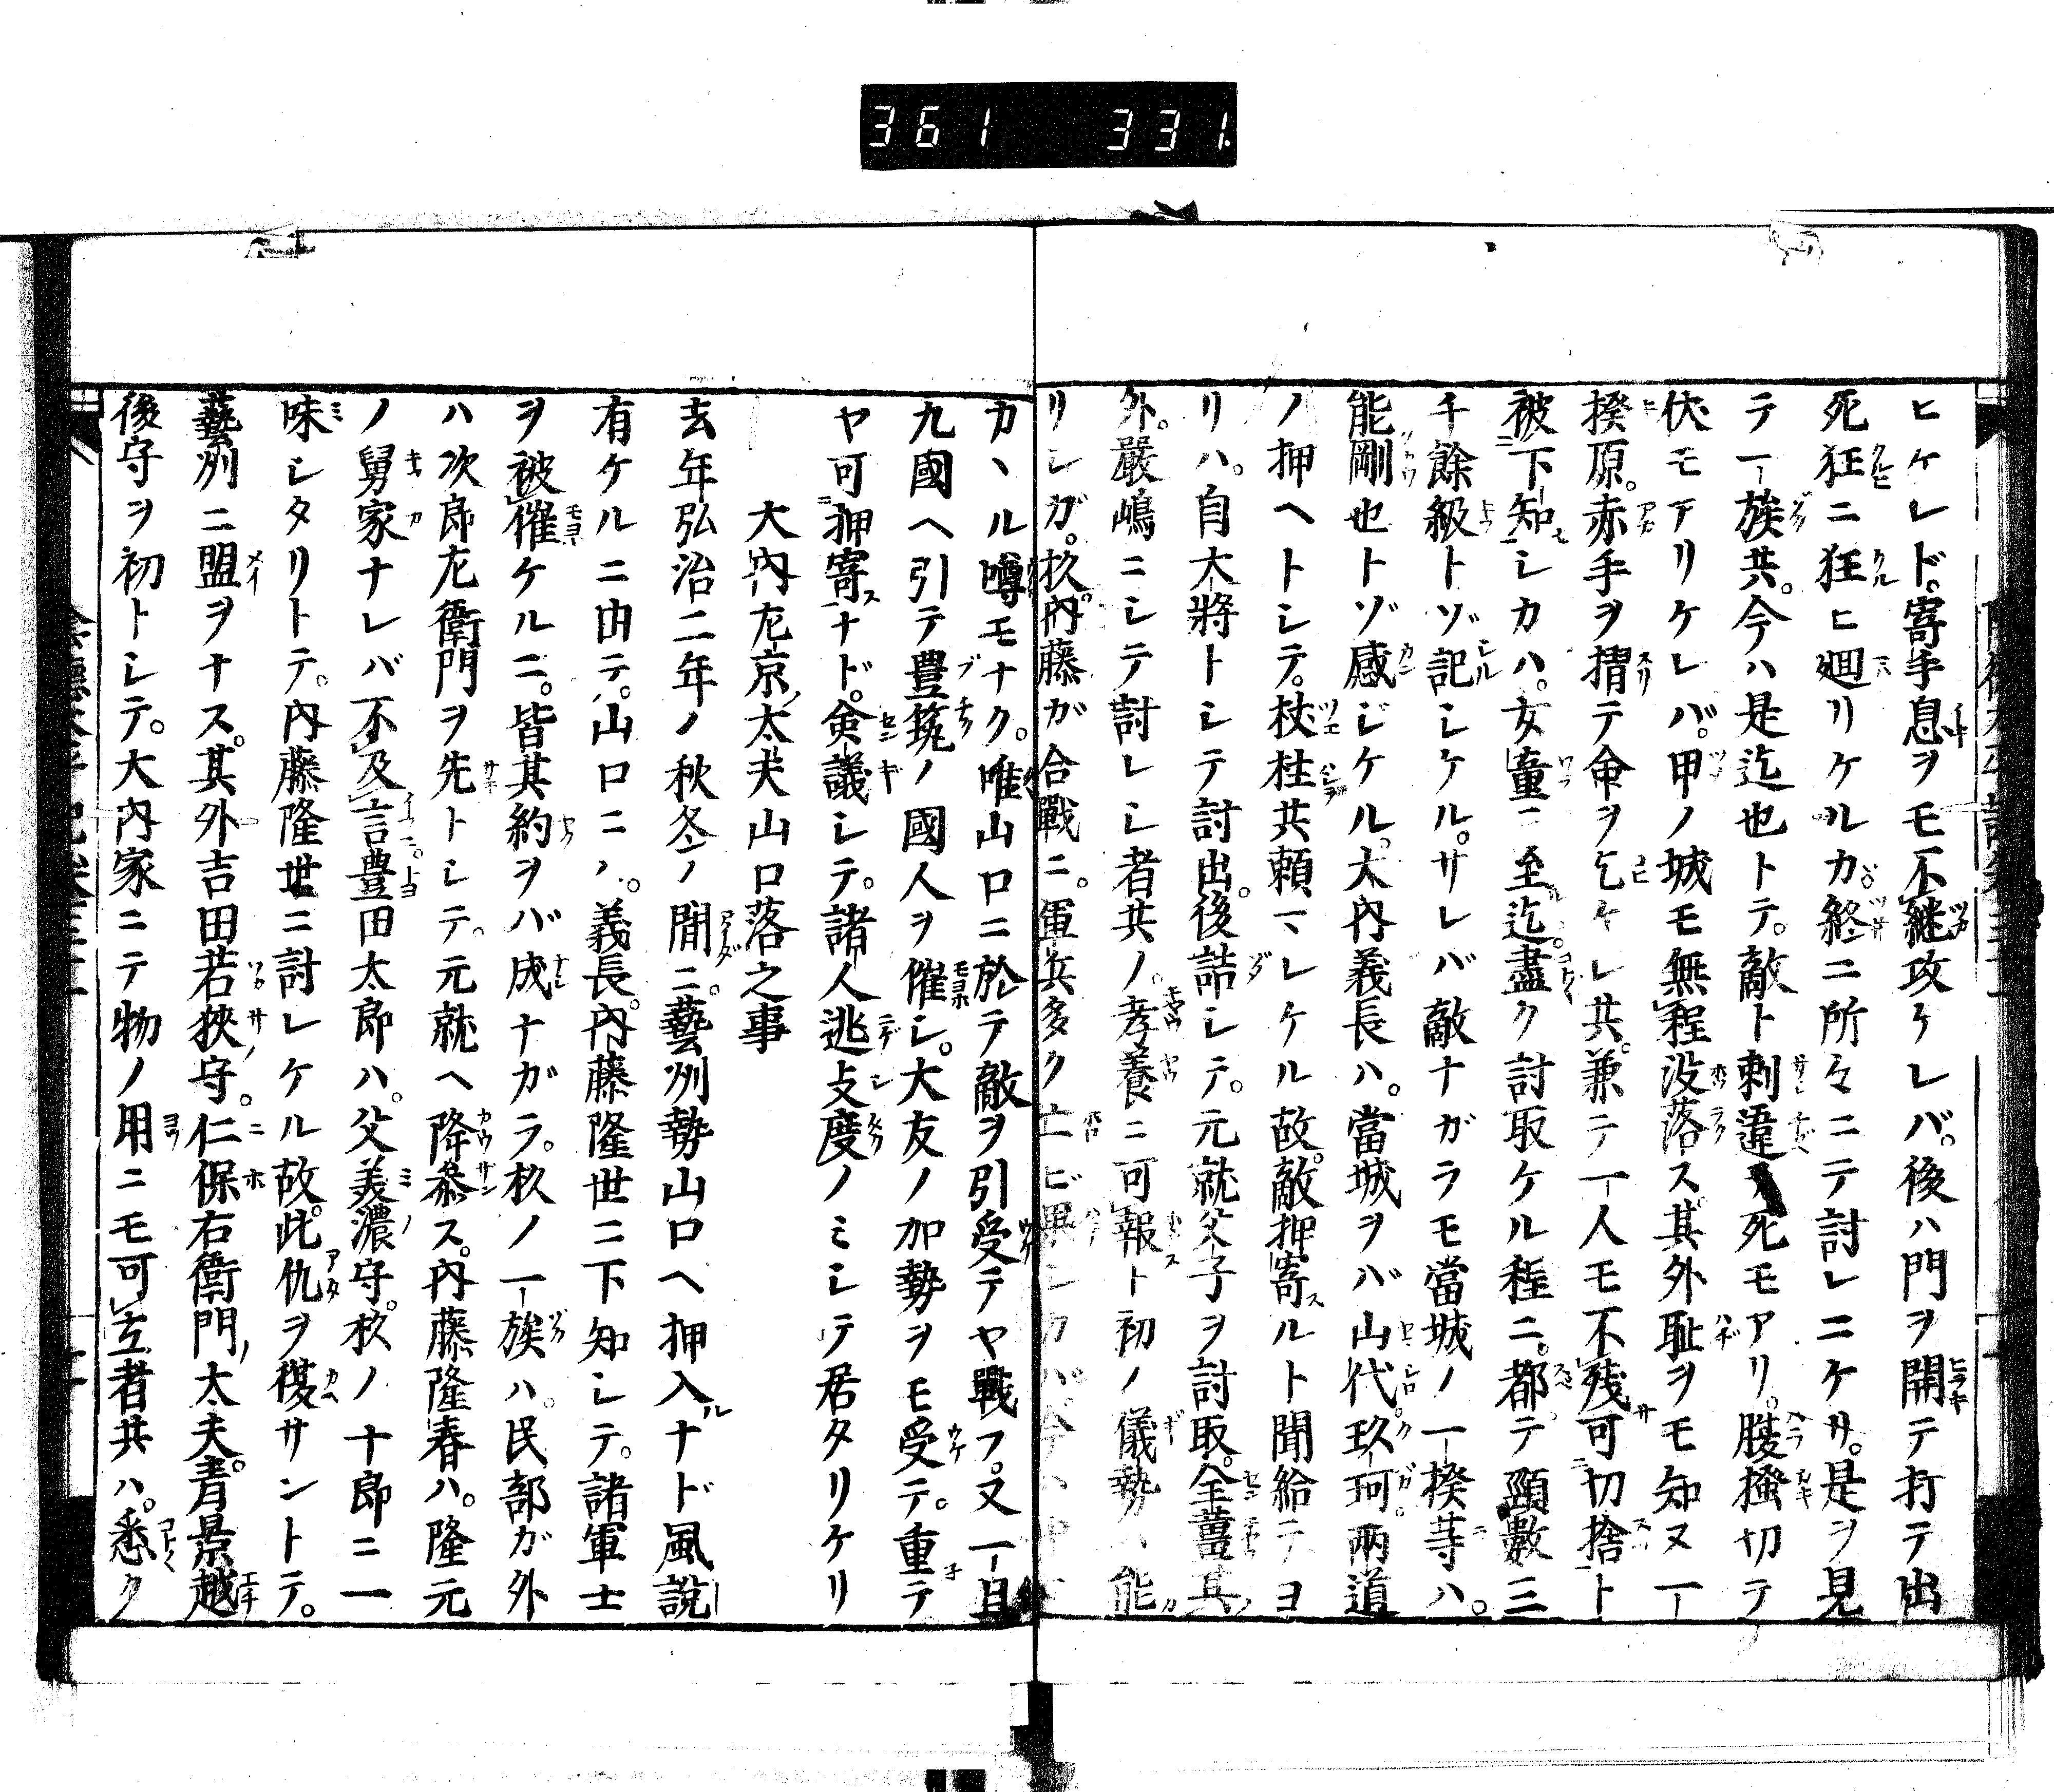 361 331.
ヒケレド。寄手息ヲモ不継攻ケレバ。後ハ門ヲ開テ打テ出
死狂ニ狂ヒ廻リケルカ終ニ所々ニテ討レニケリ。是ヲ見
テ一族共。今ハ是迄也トテ。敵ト刺違テ死モアリ。腹掻切テ
伏モアリケレバ。甲ノ城モ無程没落ス。其外耻ヲモ知ヌ一
揆原。赤手ヲ揩テ命ヲ乞ケレ共。兼テ一人モ不残可切捨ト
被下知シカハ。女童ニ至迄。盡ク討取ケル程ニ。都テ頸數三
千餘級トゾ記シケル。サレバ敵ナガラモ當城ノ一揆等ハ。
能剛也トゾ感ジケル。大内義長ハ。當城ヲバ山代玖珂兩道
ノ押ヘトシテ。杖柱共頼マレケル故。敵押寄ルト聞給テヨ
リハ。自大將トシテ討出。後詰シテ。元就父子ヲ討取。全薑其
外。嚴嶋ニシテ討レシ者共ノ。孝養ニ可報ト初ノ儀勢ハ能
リシガ。杦。内藤ガ合戰ニ。軍兵多ク亡ビ
カヽル噂モナク。唯山口ニ於テ敵ヲ引受テヤ戰フ。又一旦
九國ヘ引テ豊筑ノ國人ヲ催シ。大友ノ加勢ヲモ受テ。重テ
ヤ可押寄ナド。僉議シテ。諸人逃支度ノミシテ居タリケリ
大内左京太夫山口落之事
去年弘治二年ノ秋冬ノ間ニ。藝州勢山口ヘ押入ナド風說
有ケルニ由テ。山口ニハ。義長。内藤隆世ニ下知シテ。諸軍士
ヲ被催ケルニ。皆其約ヲバ成ナガラ。杦ノ一族ハ。民部ガ外
ハ次郎左衛門ヲ先トシテ。元就ヘ降參ス。内藤隆春ハ。隆元
ノ舅家ナレバ不及言。豊田太郎ハ。父美濃守。杦ノ十郎ニ一
味シタリトテ。内藤隆世ニ討レケル故。此仇ヲ復サントテ。
藝州ニ盟ヲナス。其外吉田若狹守。仁保右衛門太夫。青景越
後守ヲ初トシテ。大内家ニテ物ノ用ニモ可立者共ハ。悉ク